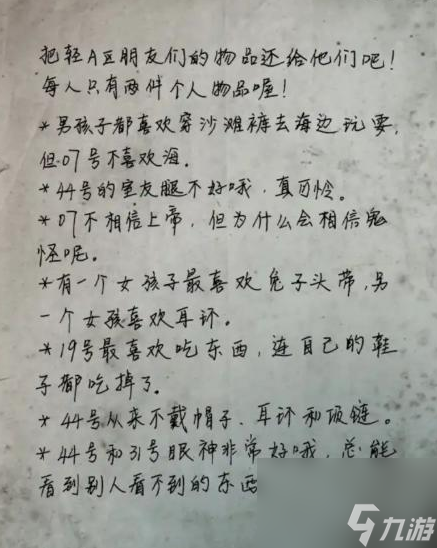 把轻A区朋友们的物品还给他们吧！
每人只有两件个人物品喔！
*男孩子都喜欢穿沙滩裤去海边玩耍，
但07号不喜欢海．
*44号的室友腿不好哦，真可怜。
*07不相信上帝，但为什么会相信鬼
怪呢。
*有一个女孩子最喜欢兔子头带，另
一个女孩喜欢耳环。
*19号最喜欢吃东西，连自己的鞋
子都吃掉了。
*44号从来不戴帽子、耳环和项链。
*44号和31号眼神非常好哦，总能
看到别人看不到的东西
九游